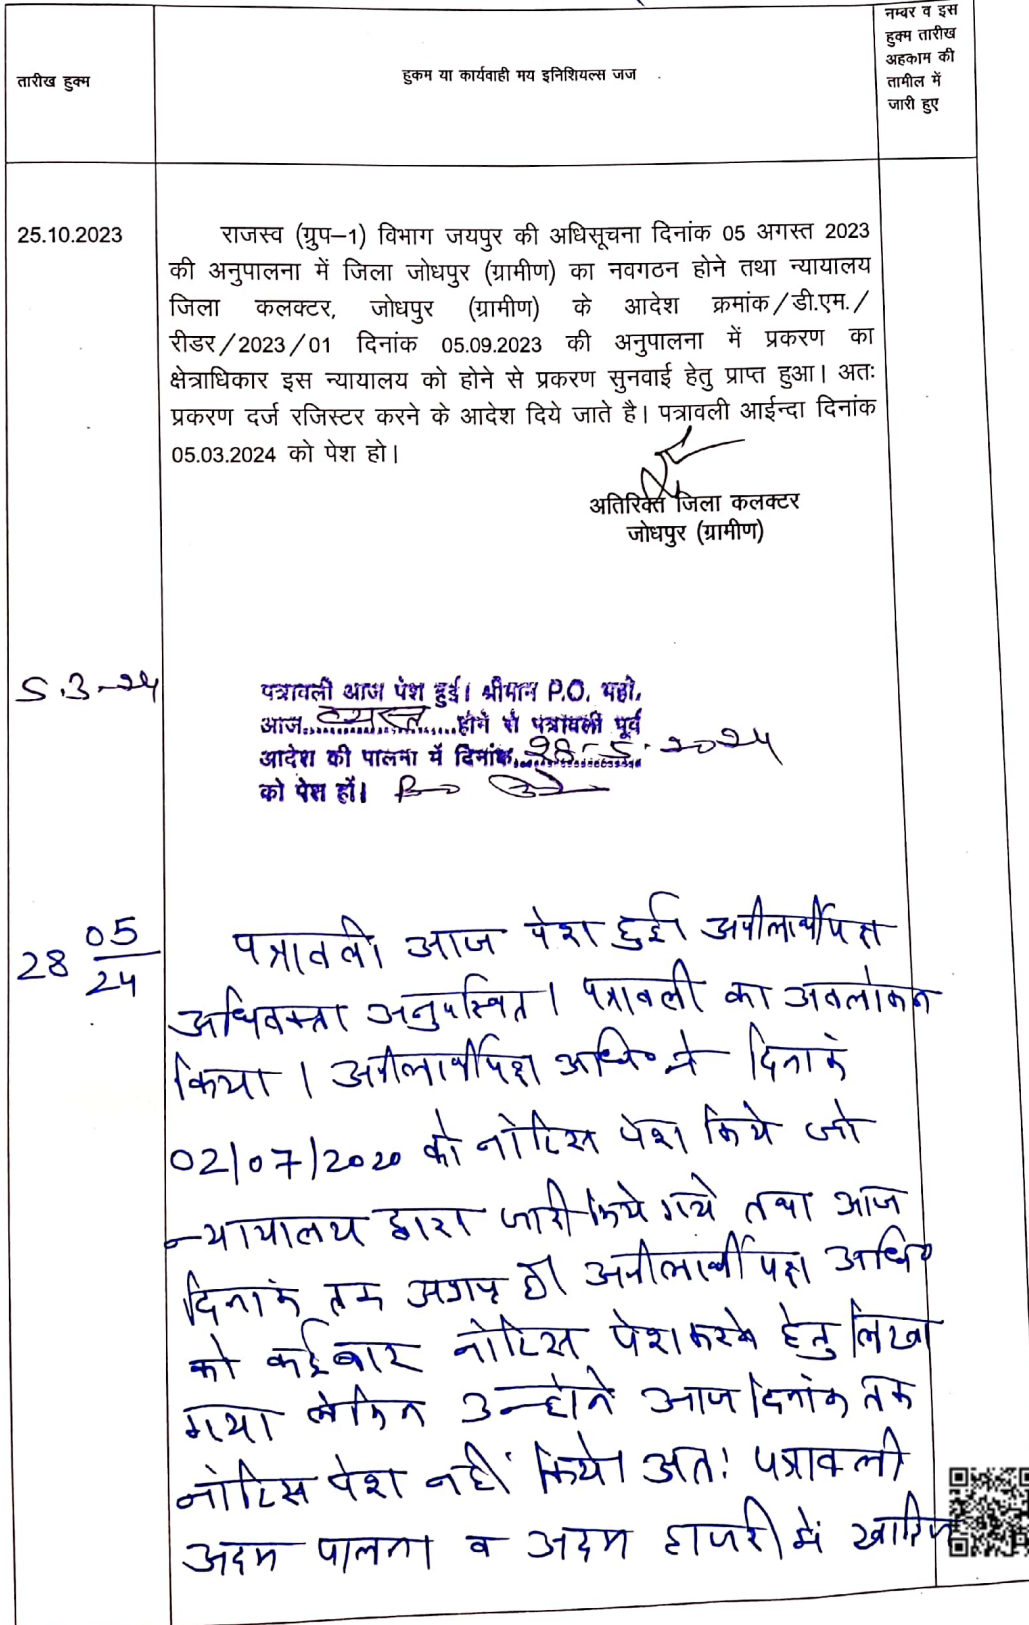 तारीख हुक्म
हुकम या कार्यवाही मय इनिशियल्स जज
नम्बर व इस
हुक्म तारीख
अहकाम की
तामील में
जारी हुए
25.10.2023
राजस्व (ग्रुप–1) विभाग जयपुर की अधिसूचना दिनांक 05 अगस्त 2023
की अनुपालना में जिला जोधपुर (ग्रामीण) का नवगठन होने तथा न्यायालय
जिला कलक्टर, जोधपुर (ग्रामीण) के आदेश क्रमांक/डी.एम./
रीडर/2023/01 दिनांक 05.09.2023 की अनुपालना में प्रकरण का
क्षेत्राधिकार इस न्यायालय को होने से प्रकरण सुनवाई हेतु प्राप्त हुआ। अतः
प्रकरण दर्ज रजिस्टर करने के आदेश दिये जाते है। पत्रावली आईन्दा दिनांक
05.03.2024 को पेश हो।
अतिरिक्त जिला कलक्टर
जोधपुर (ग्रामीण)
5.3-24
पत्रावली आज पेश हुई। श्रीमान P.O. महो.
आज व्यस्त होने से पत्रावली पूर्व
आदेश की पालना में दिनांक 28-5-2024
को पेश हों।
28 05/24
पत्रावली आज पेश हुई। अपीलार्थीपक्ष
अधिवक्ता अनुपस्थित। पत्रावली का अवलोकन
किया। अपीलार्थीपक्ष अधि० ने दिनांक
02/07/2020 को नोटिस पेश किये जो
न्यायालय द्वारा जारी किये गये तथा आज
दिनांक तक अप्राप्त है। अपीलार्थी पक्ष अधि०
को कईबार नोटिस पेश करने हेतु लिखा
गया लेकिन उन्होंने आज दिनांक तक
नोटिस पेश नहीं किये। अतः पत्रावली
अदम पालना व अदम हाजरी में खारिज